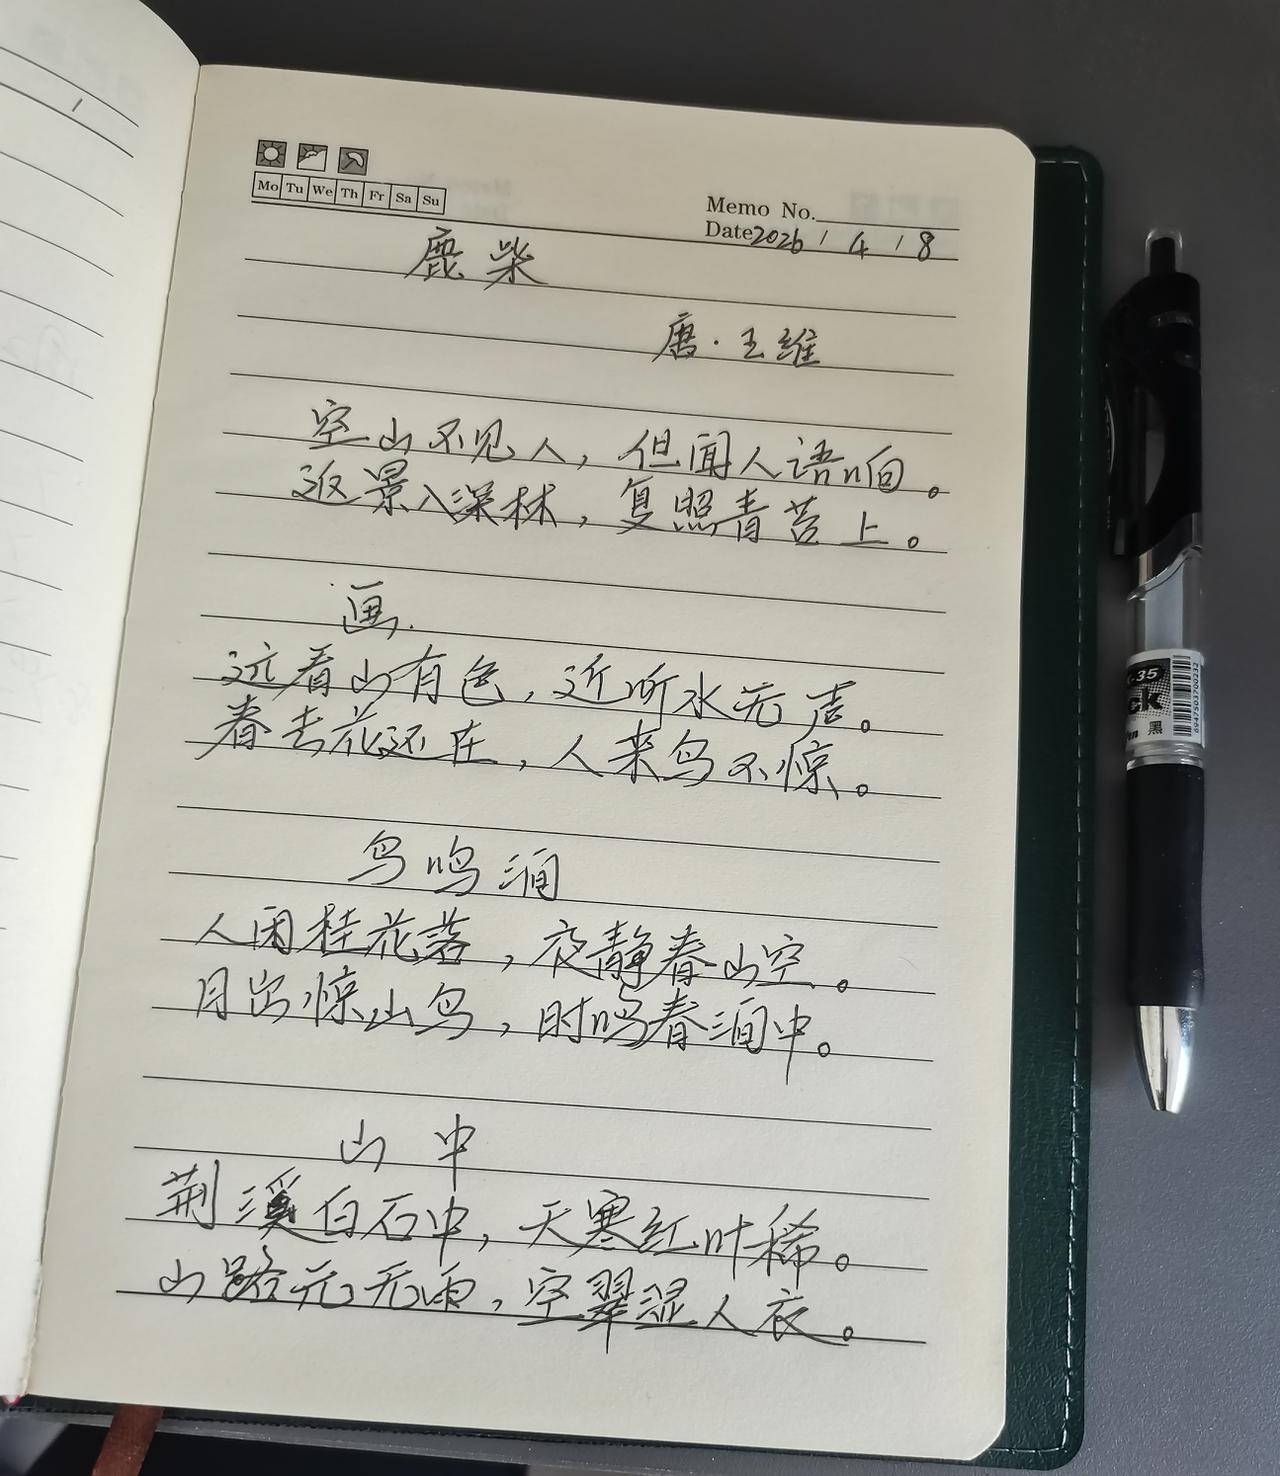 Mo Tu We Th Fr Sa Su
Memo No.
Date 2026 / 4 / 8
鹿柴
唐·王维
空山不见人，但闻人语响。
返景入深林，复照青苔上。
画
远看山有色，近听水无声。
春去花还在，人来鸟不惊。
鸟鸣涧
人闲桂花落，夜静春山空。
月出惊山鸟，时鸣春涧中。
山中
荆溪白石中，天寒红叶稀。
山路元无雨，空翠湿人衣。
-35
ck
黑
6947503700232